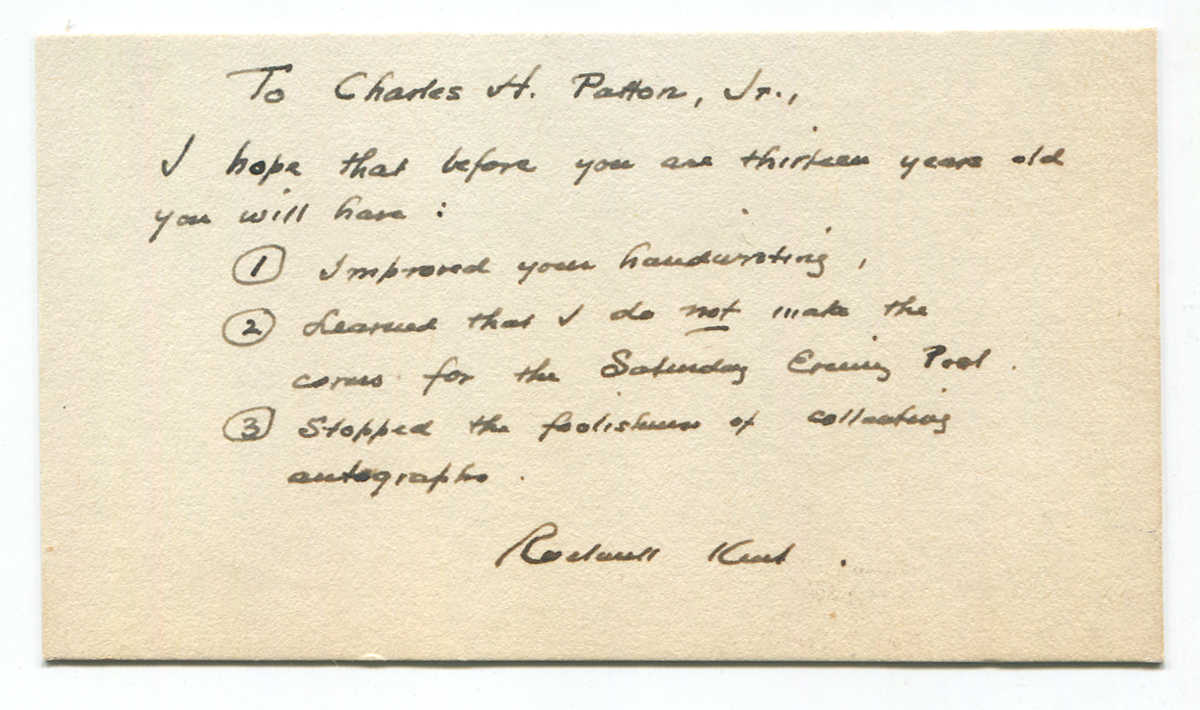 To Charles H. Patton, Jr.,
I hope that before you are thirteen years old
you will have :
① Improved your handwriting,
② Learned that I do not make the
covers for the Saturday Evening Post.
③ Stopped the foolishness of collecting
autographs.
Rockwell Kent.